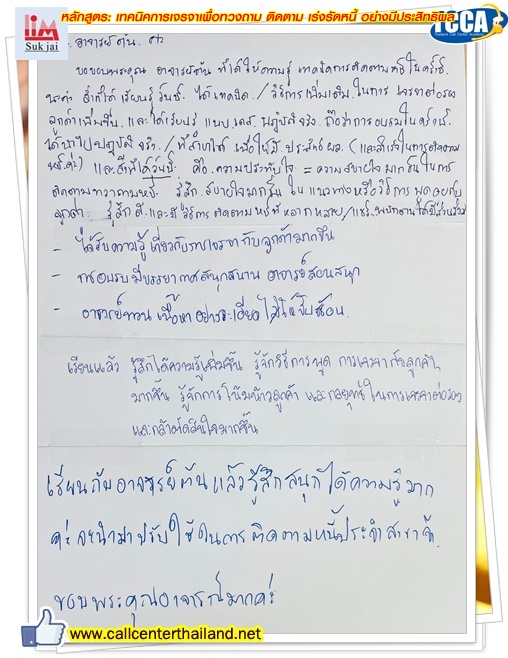 หลักสูตร: เทคนิคการเจรจาเพื่อทวงถาม ติดตาม เร่งรัดหนี้ อย่างมีประสิทธิผล
iim
Suk jai
TCCA
Thailand Call Center Academy
อาจารย์ต้น
ขอขอบพระคุณ อาจารย์ต้น ที่ได้ให้ความรู้ เทคนิคการติดตามหนี้ในครั้งนี้
ได้เทคนิค / วิธีการเพิ่มเติม ในการ เจรจาต่อรอง
ลูกค้าเพิ่มขึ้น และได้เรียนรู้ แบบ ปฏิบัติจริง ถือว่าการอบรมในครั้งนี้
ได้นำไปปฏิบัติจริง / เพื่อให้มี ประสิทธิผล (และสำเร็จในการติดตาม
และสิ่งที่ได้วันนี้ คือ ความประทับใจ = ความสบายใจ มากขึ้นในการ
ติดตามทวงถามหนี้ รู้สึก สบายใจมากขึ้น ใน แนวทางหรือวิธีการ พูดคุยกับ
ลูกค้า รู้สึกดี และมี วิธีการ ติดตามหนี้ที่หลากหลาย
- ได้รับความรู้เกี่ยวกับการเจรจากับลูกค้ามากขึ้น
- การอบรมมีบรรยากาศสนุกสนาน อาจารย์สอนสนุก
- อาจารย์ทวนเนื้อหาอย่างละเอียด ไม่ให้ซับซ้อน
เรียนแล้ว รู้สึกได้ความรู้เพิ่มขึ้น รู้จักวิธีการพูด การเจรจากับลูกค้า
มากขึ้น รู้จักการโน้มน้าวลูกค้า และกลยุทธ์ในการเจรจาต่อรอง
และกล้าตัดสินใจมากขึ้น
เรียนกับอาจารย์ต้นแล้วรู้สึกสนุกได้ความรู้มาก
ค่ะ จะนำมาปรับใช้ในการติดตามหนี้ประจำสาขา
ขอบพระคุณอาจารย์มากค่ะ
www.callcenterthailand.net